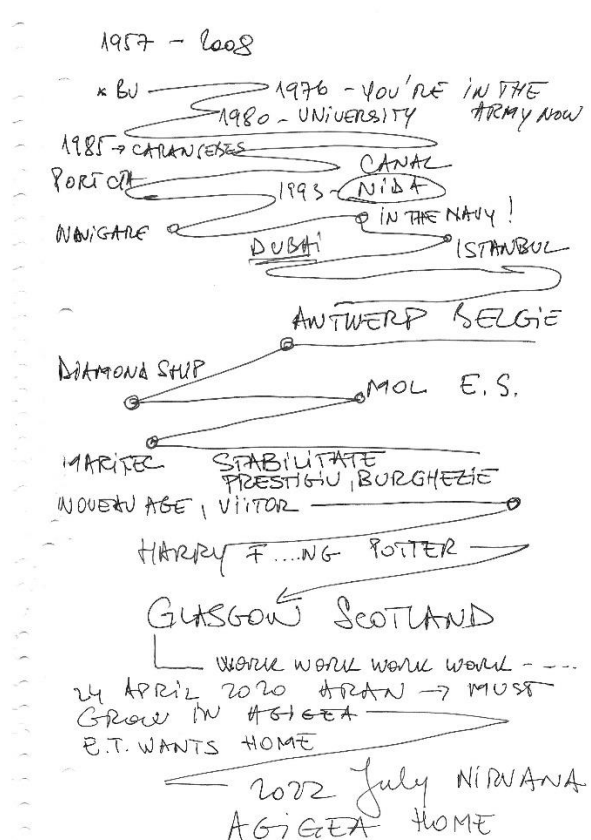 1957 - 2008
* BU 1976 - YOU'RE IN THE
1980 - UNIVERSITY ARMY NOW
1985 → CARANSEBES
CANAL
PORT CTA 1993 - NIDA
NAVIGARE IN THE NAVY!
DUBAI ISTANBUL
ANTWERP BELGIE
DIAMOND SHIP
MOL E.S.
MARITEC STABILITATE
PRESTIGIU, BURGHEZIE
NOUEAU AGE, VIITOR
HARRY F....NG POTTER
GLASGOW SCOTLAND
WORK WORK WORK WORK - ----
24 APRIL 2020 ARAN → MUST
GROW IN AGIGEA
E.T. WANTS HOME
2022 July NIRVANA
AGIGEA HOME